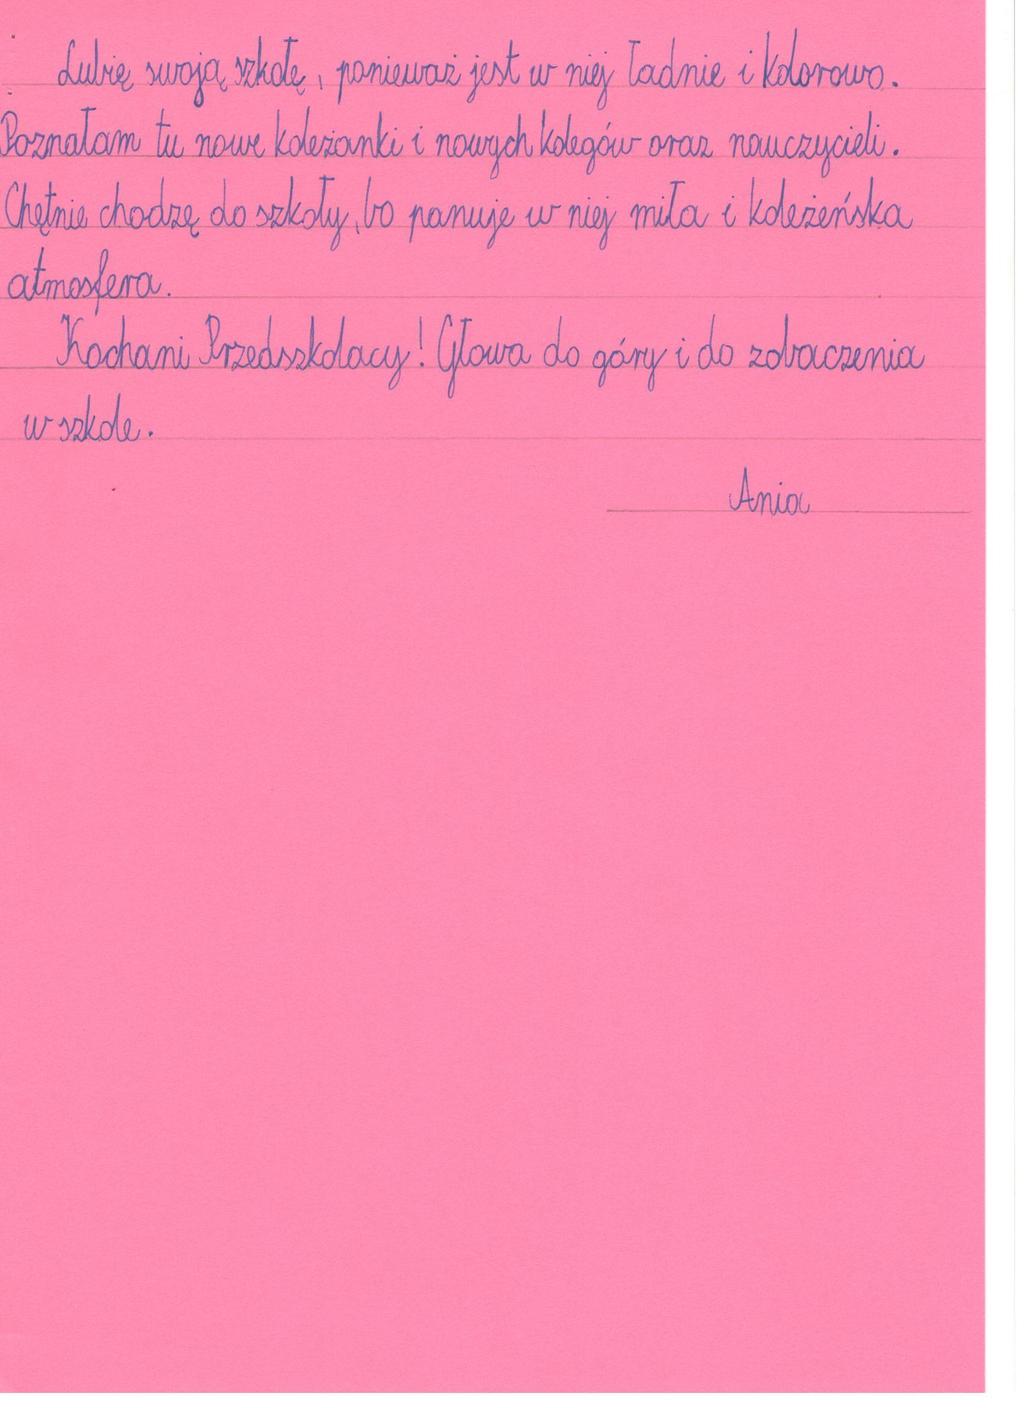 Lubię swoją szkołę, ponieważ jest w niej ładnie i kolorowo.
Poznałam tu nowe koleżanki i nowych kolegów oraz nauczycieli.
Chętnie chodzę do szkoły, bo panuje w niej miła i koleżeńska
atmosfera.
Kochani Przedszkolacy! Głowa do góry i do zobaczenia
w szkole.
Ania